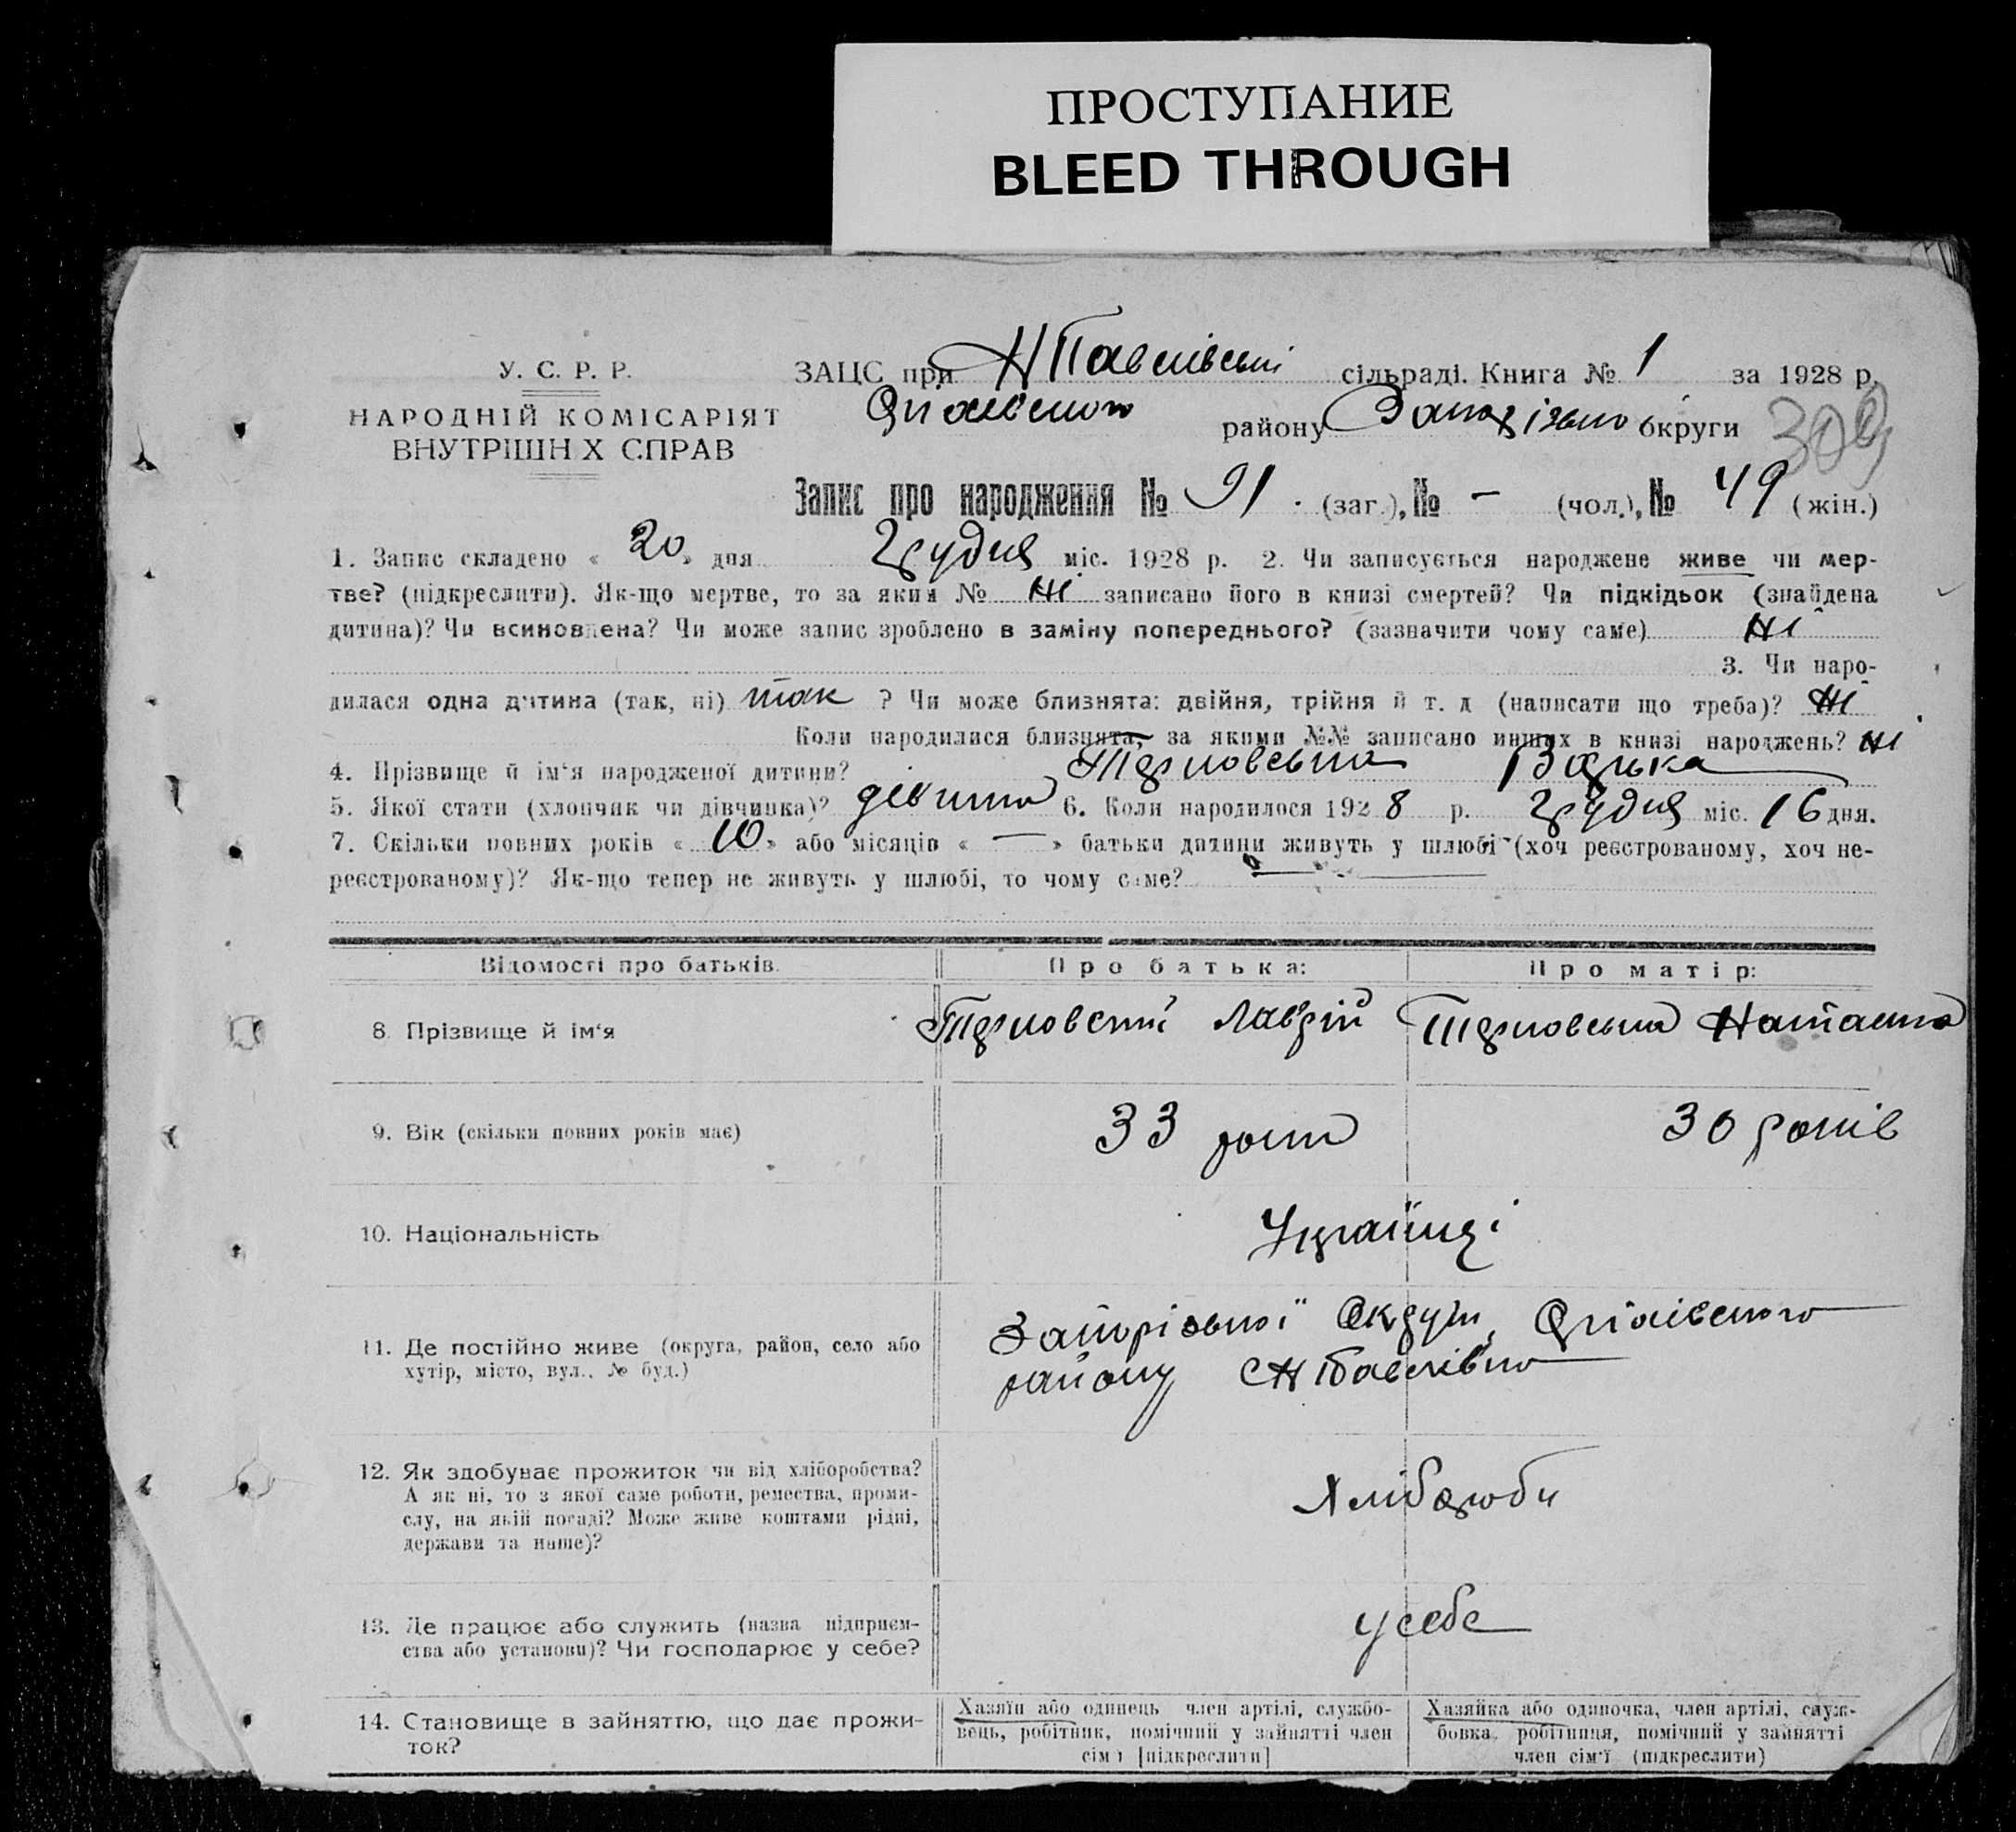 ПРОСТУПАНИЕ
BLEED THROUGH
У. С. Р. Р.
НАРОДНІЙ КОМІСАРІЯТ
ВНУТРІШН Х СПРАВ
ЗАЦС при Н Павлівські сільраді. Книга № 1 за 1928 р.
району округи 309
Запис про народження № 91 (заг.), № - (чол.), № 49 (жін.)
1. Запис складено « 20 » дня грудня міс. 1928 р. 2. Чи записується народжене живе чи мер-
тве? (підкреслити). Як-що мертве, то за яким № ні записано його в книзі смертей? Чи підкідьок (знайдена
дитина)? Чи всиновлена? Чи може запис зроблено в заміну попереднього? (зазначити чому саме) ні
3. Чи наро-
дилася одна дитина (так, ні) так ? Чи може близнята: двійня, трійня й т. д (написати що треба)? ні
Коли народилися близнята, за якими №№ записано инших в книзі народжень? ні
4. Прізвище й ім'я народженої дитини? Терновська
5. Якої стати (хлопчик чи дівчинка)? дівчина 6. Коли народилося 192 8 р. грудня міс. 16 дня.
7. Скільки повних років « 10 » або місяців « — » батьки дитини живуть у шлюбі (хоч реєстрованому, хоч не-
реєстрованому)? Як-що тепер не живуть у шлюбі, то чому саме? —
Відомості про батьків.
Про батька:
Про матір:
8 Прізвище й ім'я
Терновский Лаврій
Терновська Наташа
9. Вік (скільки повних років має)
33 роки
30 років
10. Національність
Українці
11. Де постійно живе (округа, район, село або
хутір, місто, вул., № буд.)
Запорізької Округи,
району с Н Павлівка
12. Як здобуває прожиток чи від хліборобства?
А як ні, то з якої саме роботи, ремества, проми-
слу, на якій посаді? Може живе коштами рідні,
держави та инше)?
Хлібороби
13. Де працює або служить (назва підприєм-
ства або установи)? Чи господарює у себе?
у себе
14. Становище в зайняттю, що дає прожи-
ток?
Хазяїн або одинець член артілі, службо-
вець, робітник, помічний у зайнятті член
сім'ї [підкреслити]
Хазяйка або одиночка, член артілі, служ-
бовка, робітниця, помічний у зайнятті
член сім'ї (підкреслити)